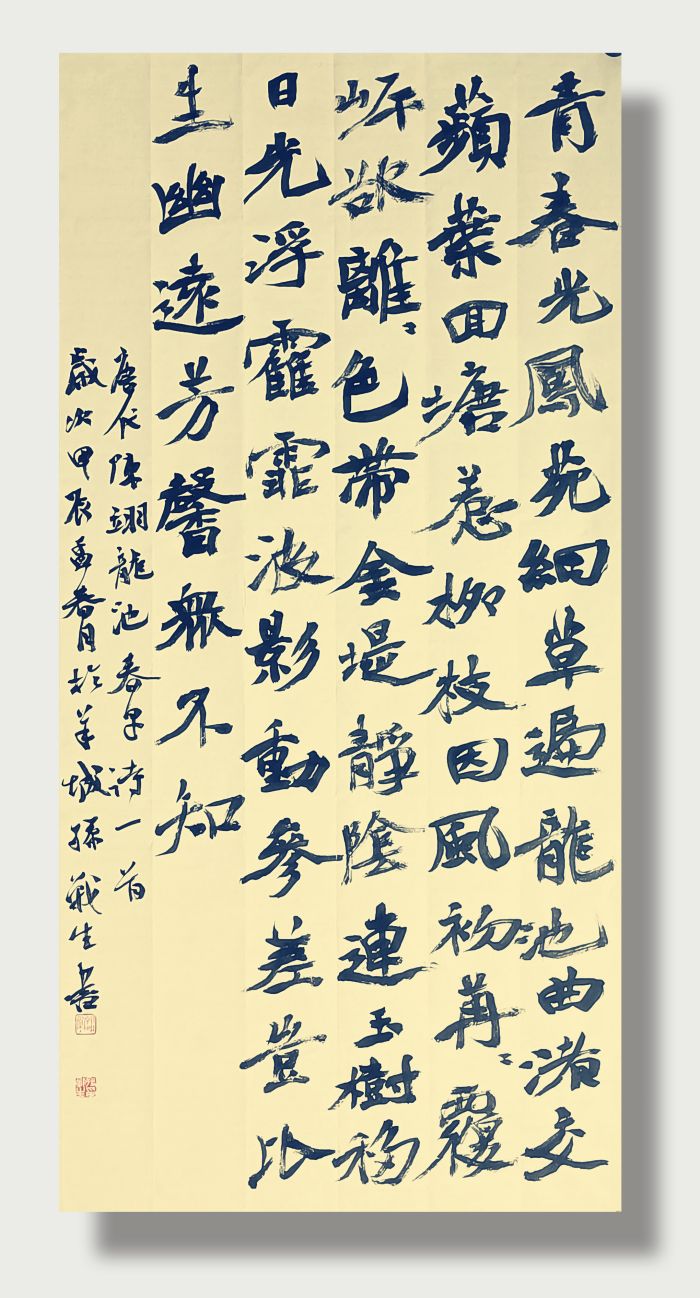 青春光鳳苑細草遍龍池曲渚交
蘋葉回塘惹柳枝因風初苒〻覆
岸欲離〻色帶金堤靜陰連玉樹移
日光浮靃霏波影動參差豈比
生幽遠芳馨眾不知
唐代陳翊龍池春草詩一首
歲次甲辰春月於羊城孫戰生書